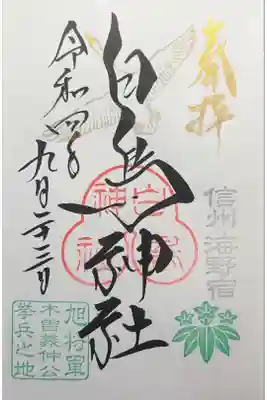 奉拝
信州海野宿
白鳥神社
白鳥神社
令和四年九月二十三日
旭将軍
木曽義仲公
挙兵之地